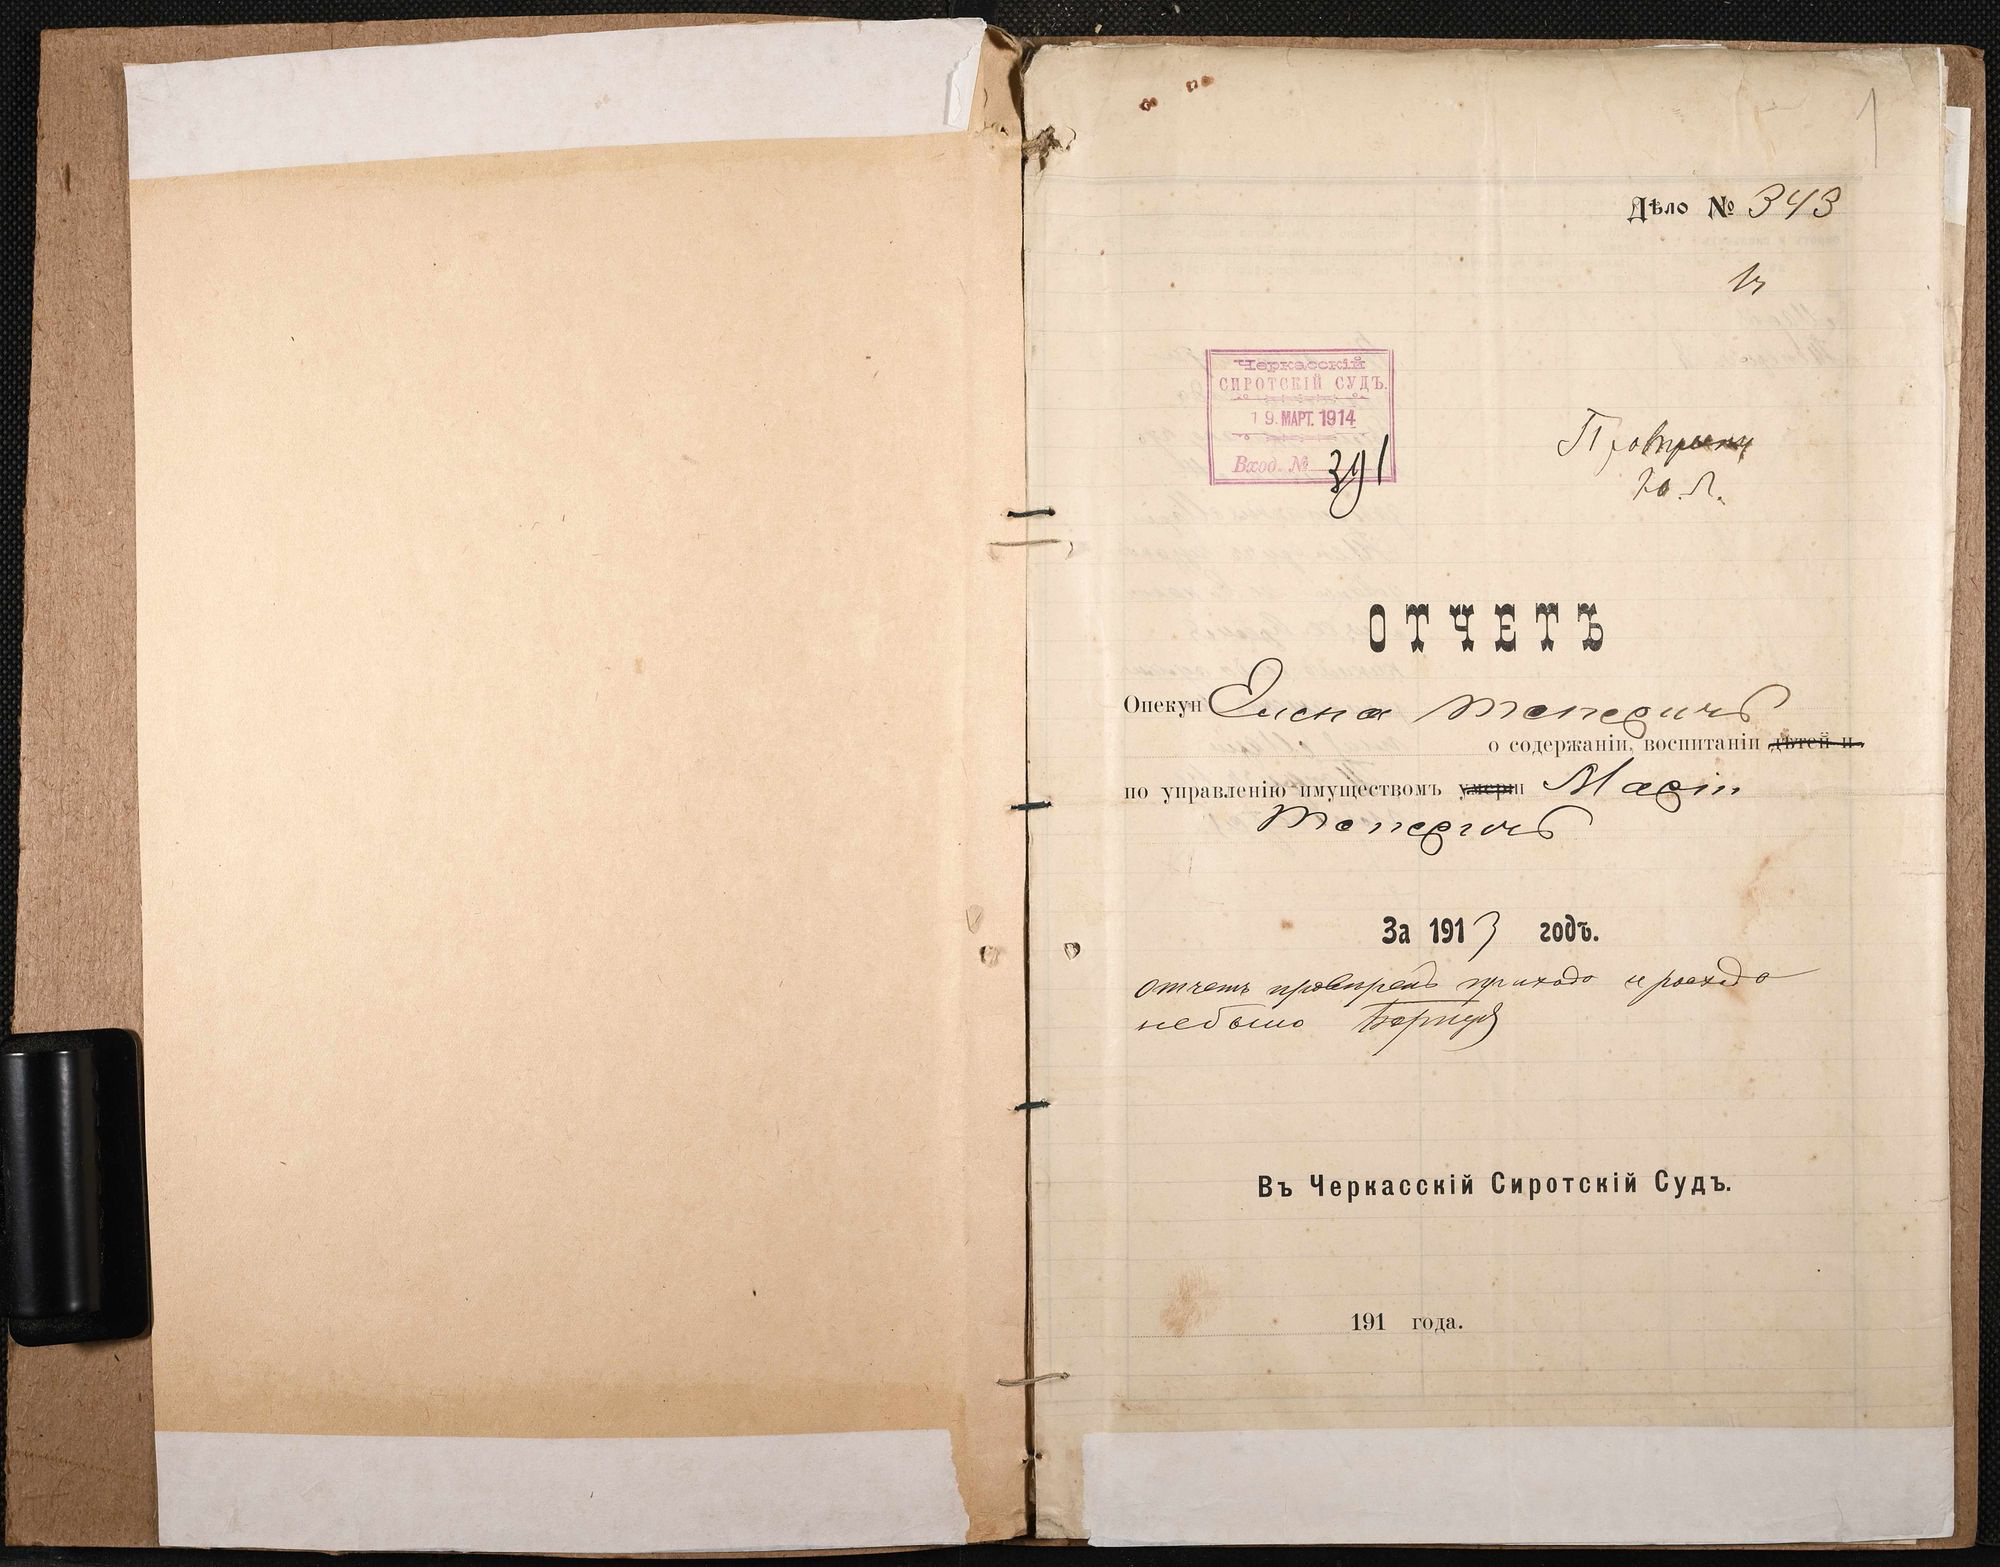 1
Дѣло № 343
Черкасскій
СИРОТСКІЙ СУДЪ.
19. МАРТ. 1914
Вход. № 391
ОТЧЕТЪ
Опекун Елена
о содержаніи, воспитаніи дѣтей и
по управленію имуществомъ умерш Маріи
За 1913 годъ.
отчетъ провѣренъ прихода и расхода
небыло
Въ Черкасскій Сиротскій Судъ.
191 года.